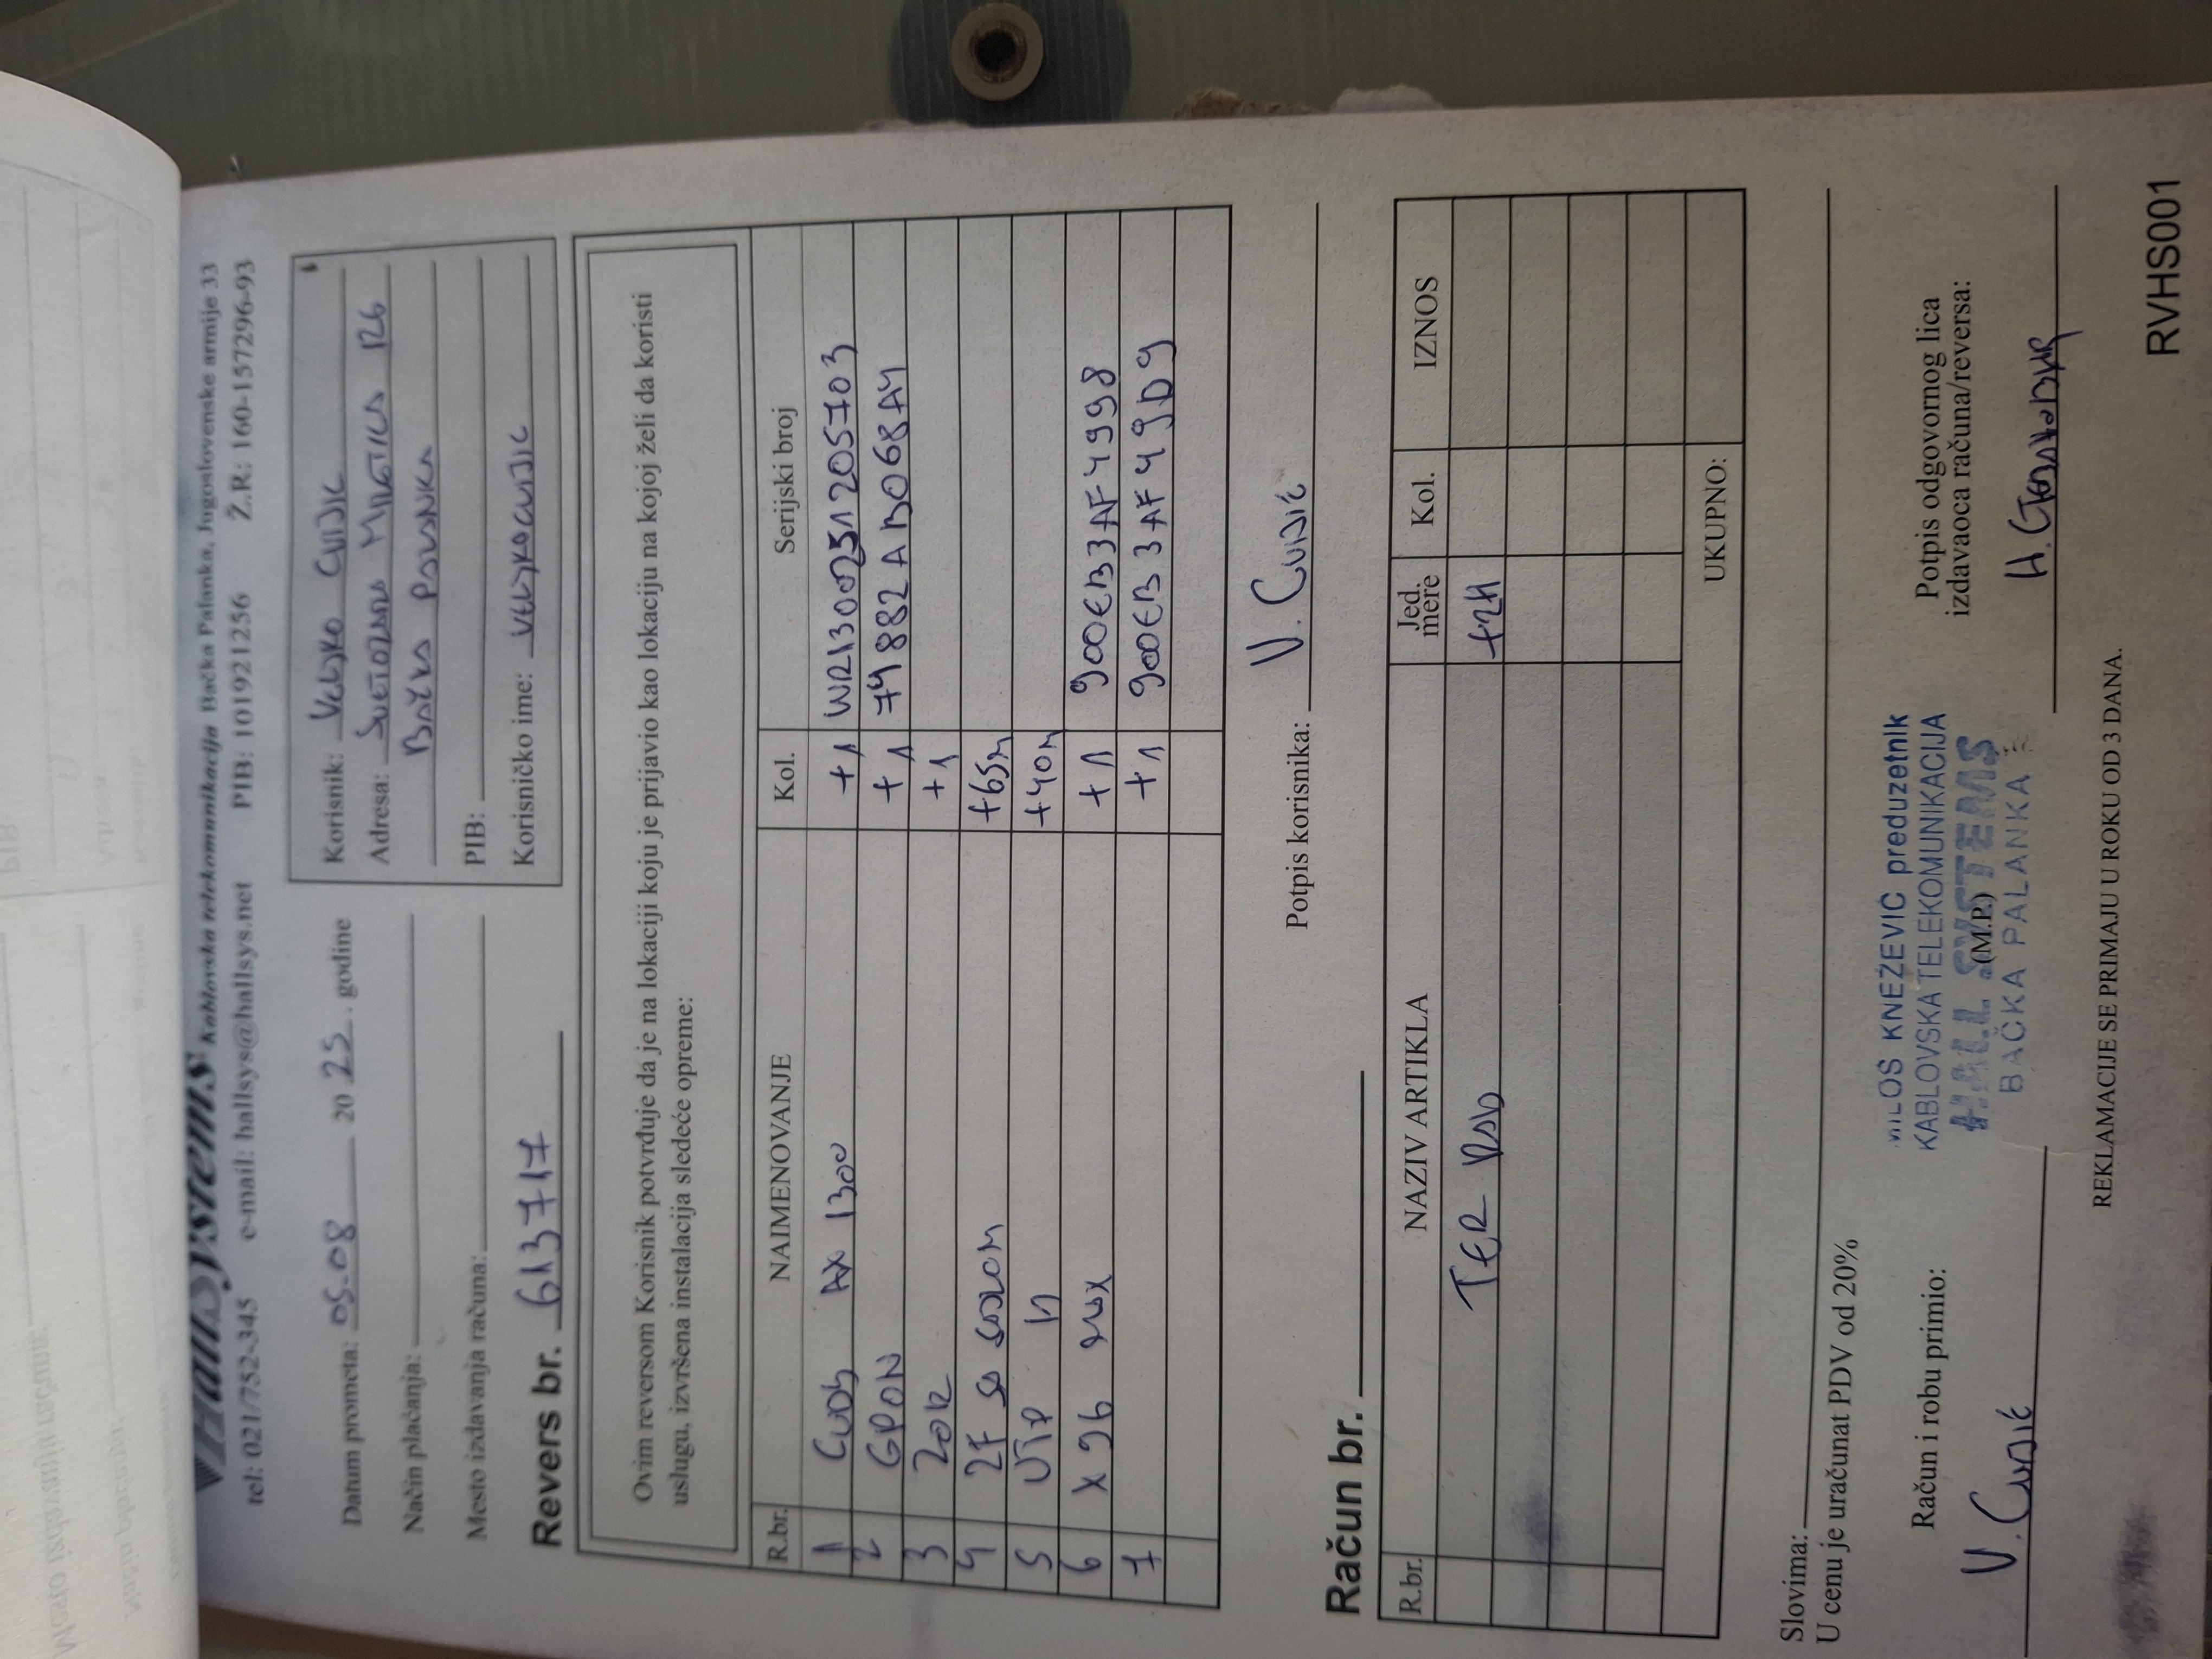 HallSystems Kablovska telekomunikacija Bačka Palanka, Jugoslovenske armije 33
tel: 021/752-345 e-mail: hallsys@hallsys.net PIB: 101921256 Ž.R: 160-157296-93
Datum prometa: 05.08 20 25. godine
Način plaćanja:
Mesto izdavanja računa:
Revers br. 613717
Korisnik: VELJKO CVIJIC
Adresa: SVETOZARA MILETICA 126
BAČKA PALANKA
PIB:
Korisničko ime: VELJKOCVIJIC
Ovim reversom Korisnik potvrđuje da je na lokaciji koju je prijavio kao lokaciju na kojoj želi da koristi
uslugu, izvršena instalacija sledeće opreme:
R.br. NAIMENOVANJE Kol. Serijski broj
1 CUDY AX 1300 +1 WR1300251205703
2 GPON +1 74882AB068A4
3 ZOK +1
4 2F SA SAJLOM +65m
5 UTP +40m
6 X96 MAX +1 900EB3AF4998
7 +1 900EB3AF49D9
Potpis korisnika: V. Cvijić
Račun br.
R.br. NAZIV ARTIKLA Jed. mere Kol. IZNOS
TER RAD +2H
UKUPNO:
Slovima:
U cenu je uračunat PDV od 20%
Račun i robu primio:
V. Cvijić
MILOŠ KNEŽEVIĆ preduzetnik
KABLOVSKA TELEKOMUNIKACIJA
HALL SYSTEMS
(M.P.)
BAČKA PALANKA
Potpis odgovornog lica
izdavaoca računa/reversa:
REKLAMACIJE SE PRIMAJU U ROKU OD 3 DANA.
RVHS001